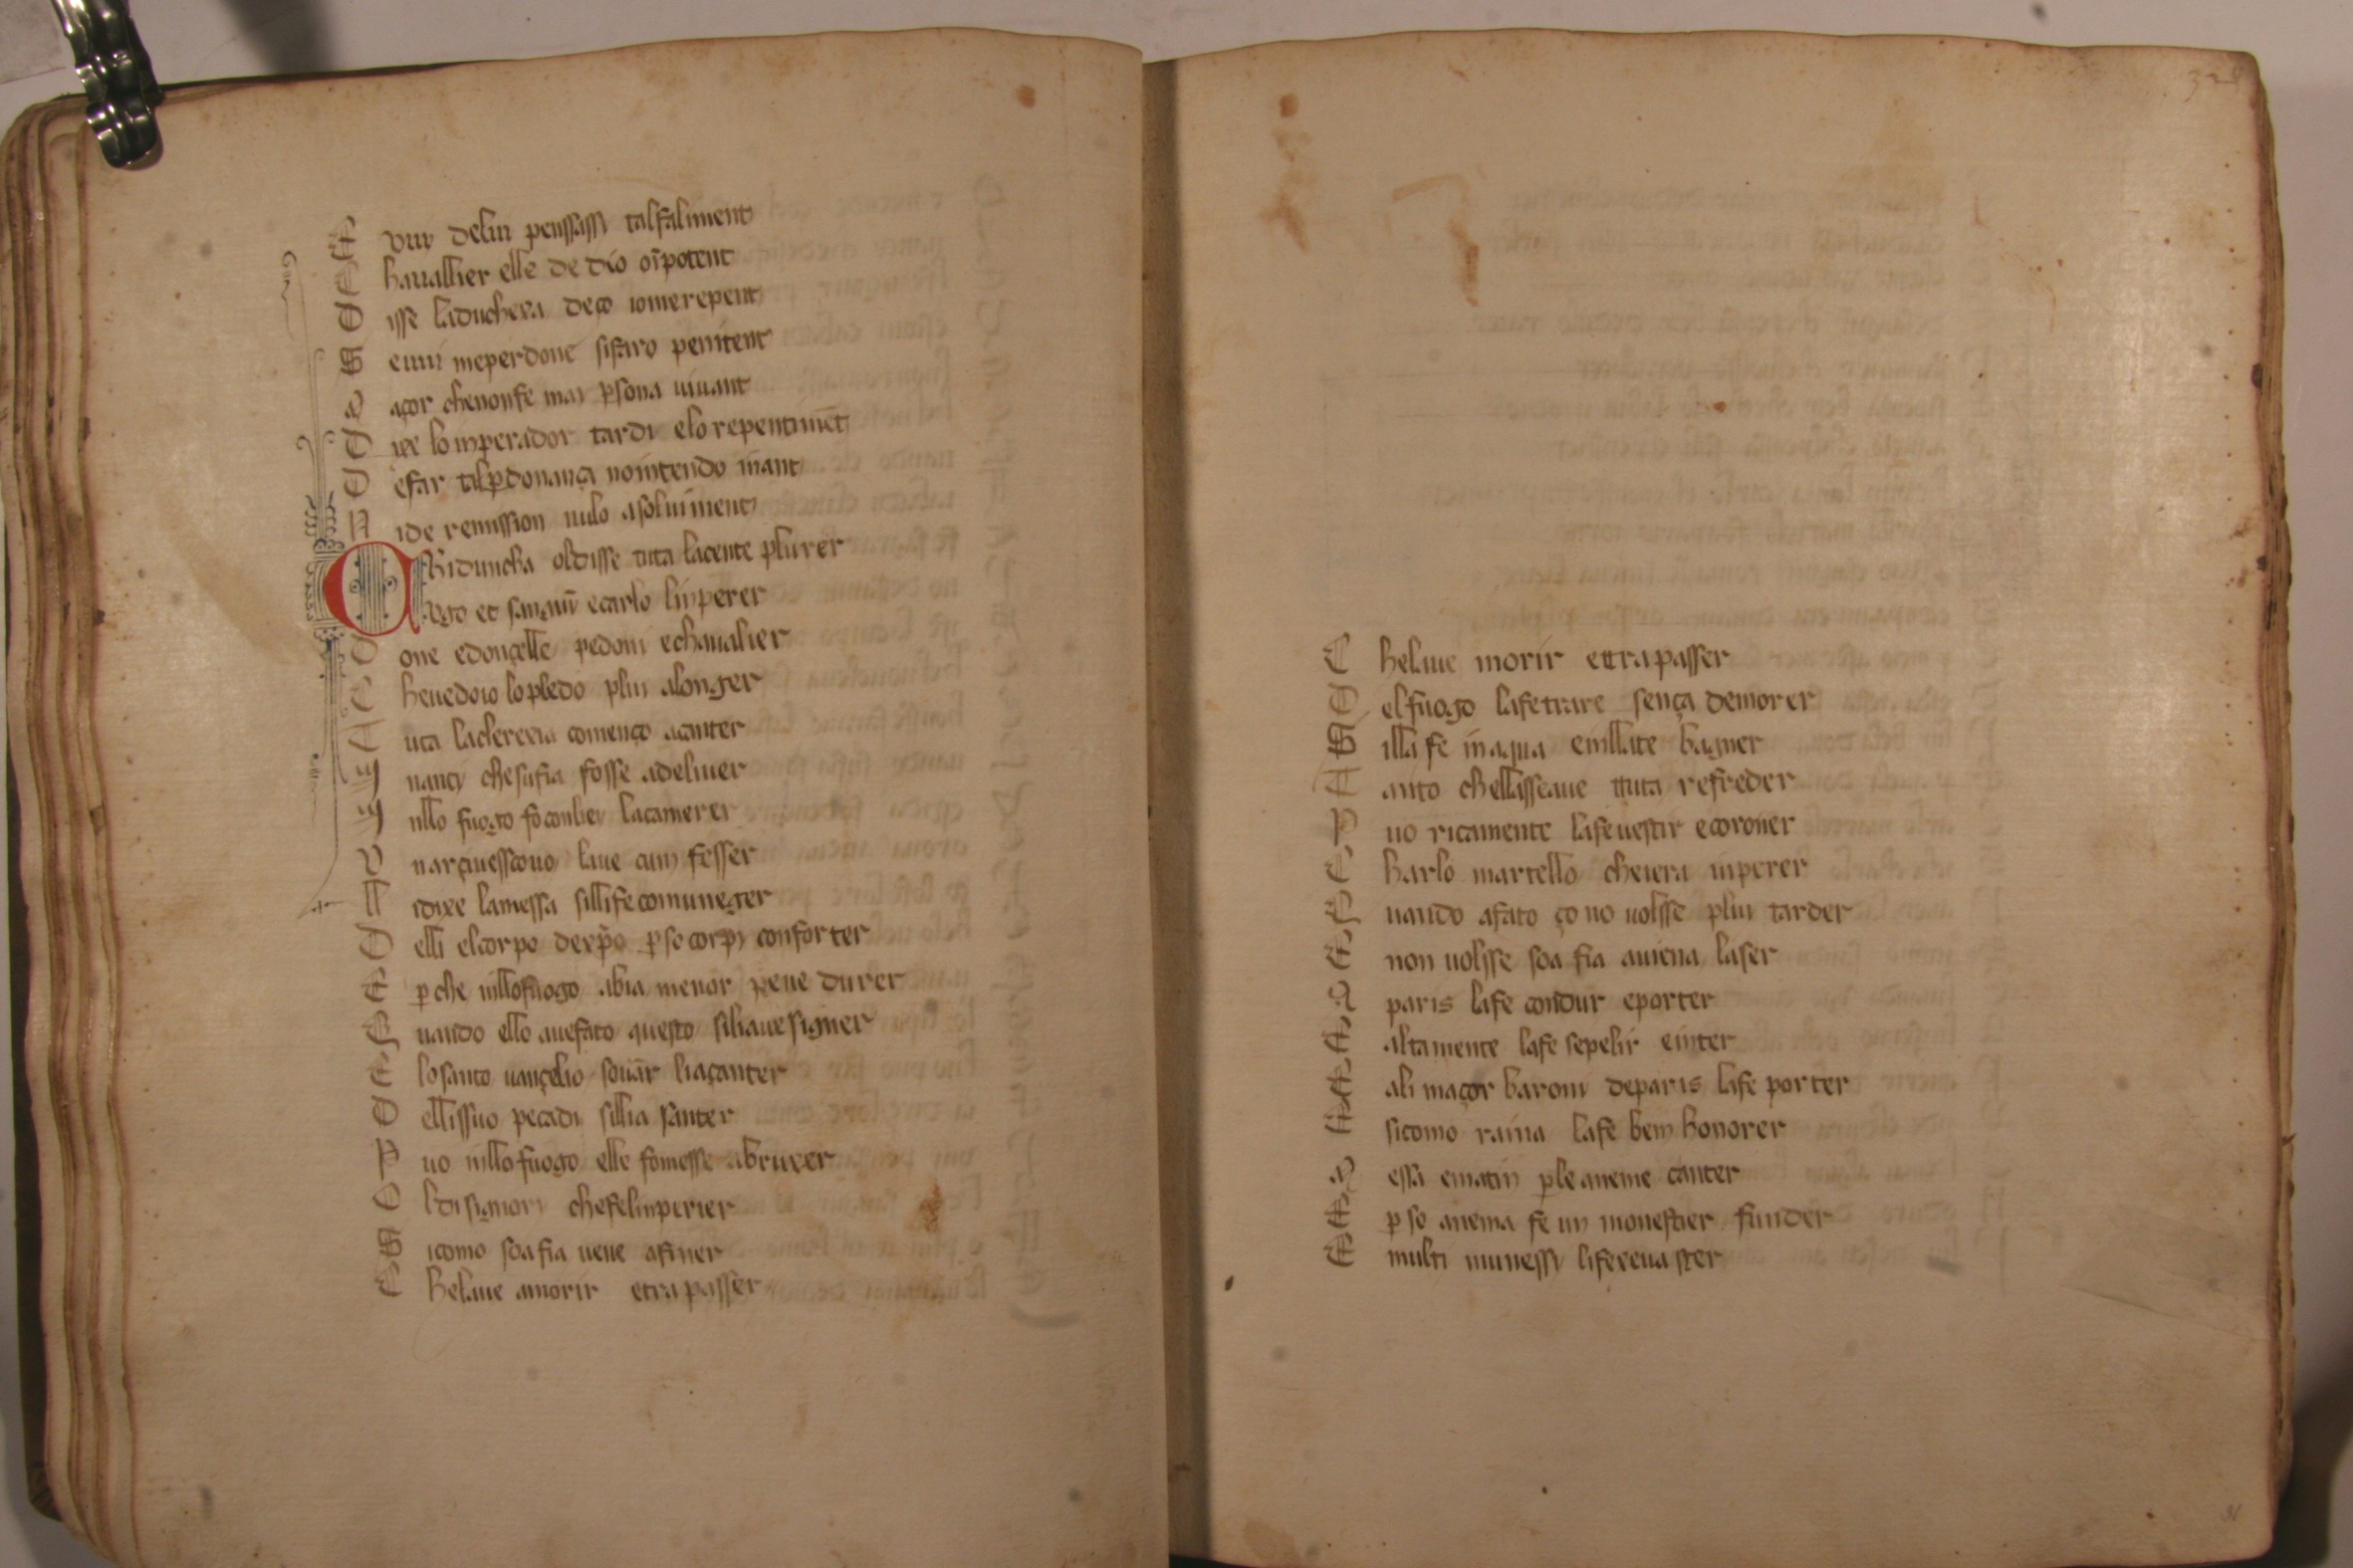 E vuy deluy penssassi talfaliment
C havallier elle de dio oĩpotent
D isse laduchesa deço iomerepent
S euui meperdone sifaro penitent
M açor chenonfe may psona vivant
D ixe lo inperador tardi elo repentimẽt
D efar talpdonança nointendo niant
N ide remission nulo asoluiment
Chiduncha oldisse tuta lacente plurer
Vgo et sanguĩ ecarlo linperer
D one edonçelle pedoni echavalier
C hevedoio lo pledo pluy alonger
T uta laclerexia començo acanter
I nançi chesafia fosse adeliuer
I nllo fuogo
V narçivesscovo live cum fesser
LL idixe lamessa sillife comuneger
D elli elcorpo dexp̃o pso corpy conforter
E pche inllofuogo abia menor pene durer
Q uando ello avefato questo siliavesigner
E lo santo vançelio sovãr liaçanter
D ellissuo pecadi sillia santer
P uo inllofuogo elle fomesse abruxer
O ldi signori chefelinperier
S icomo soafia vene afiner
C helave amorir etrapasser
328
C helave morir etrapasser
D elfuogo lafetrare sença demorer
S illa fe in aqua enllate bagner
T anto chellasseave ttuta refreder
P uo ricamente lafevestir ecoroner
C harlo martello cheiera inperer
Q uando afato ço no volsse pluy tarder
E non volsse soa fia aviena laser
A paris lafe condur eporter
E altamente lafe sepelir einter
E ali maçor baroni deparis lafe porter
E sicomo raina lafe ben honorer
M essa ematin ple aneme canter
E pso anema fe un monestier funder
E multi munessi lifexevaster